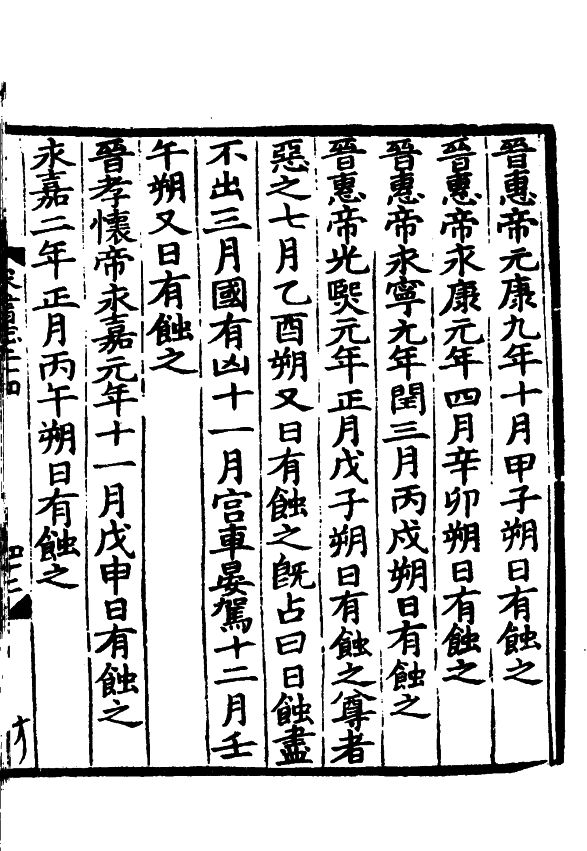 晉惠帝元康九年十一月甲子朔日有蝕之
晉惠帝永康元年四月辛卯朔日有蝕之
晉惠帝永寧元年閏三月丙戍朔日有蝕之
晉惠帝光熈元年正月戊子朔日有蝕之尊者
惡之七月乙酉朔又日有蝕之旣占曰日蝕盡
不出三月國有凶十一月宮車晏駕十二月壬
午朔又日有蝕之
晉孝懷帝永嘉元年十一月戊申日有蝕之
永嘉二年正月丙午朔日有蝕之